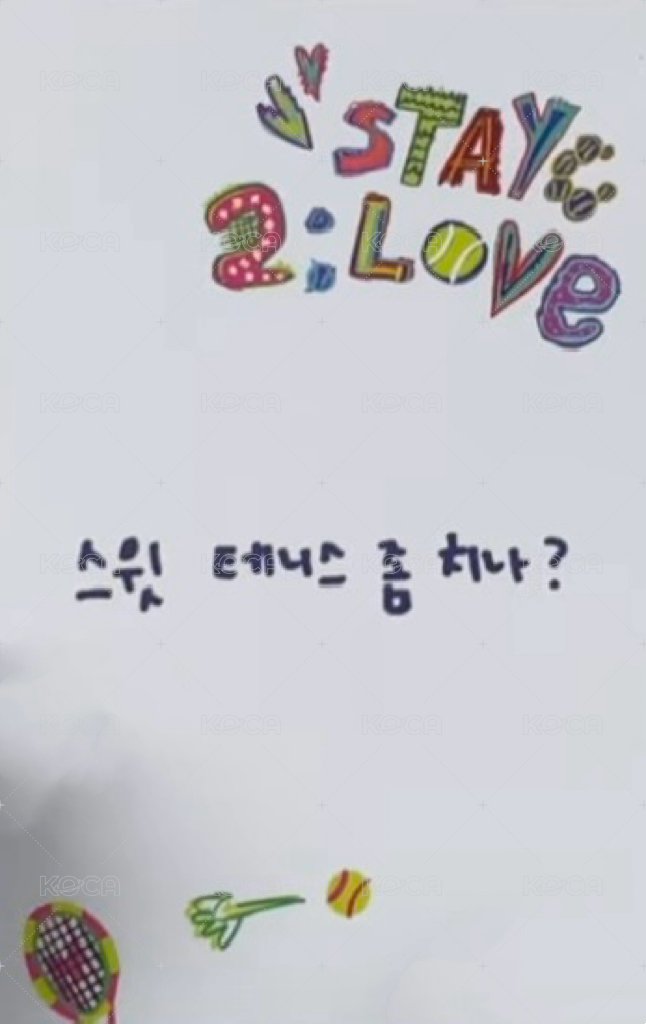 STAY
2:LOVE
스윗 테니스 좀 치나?